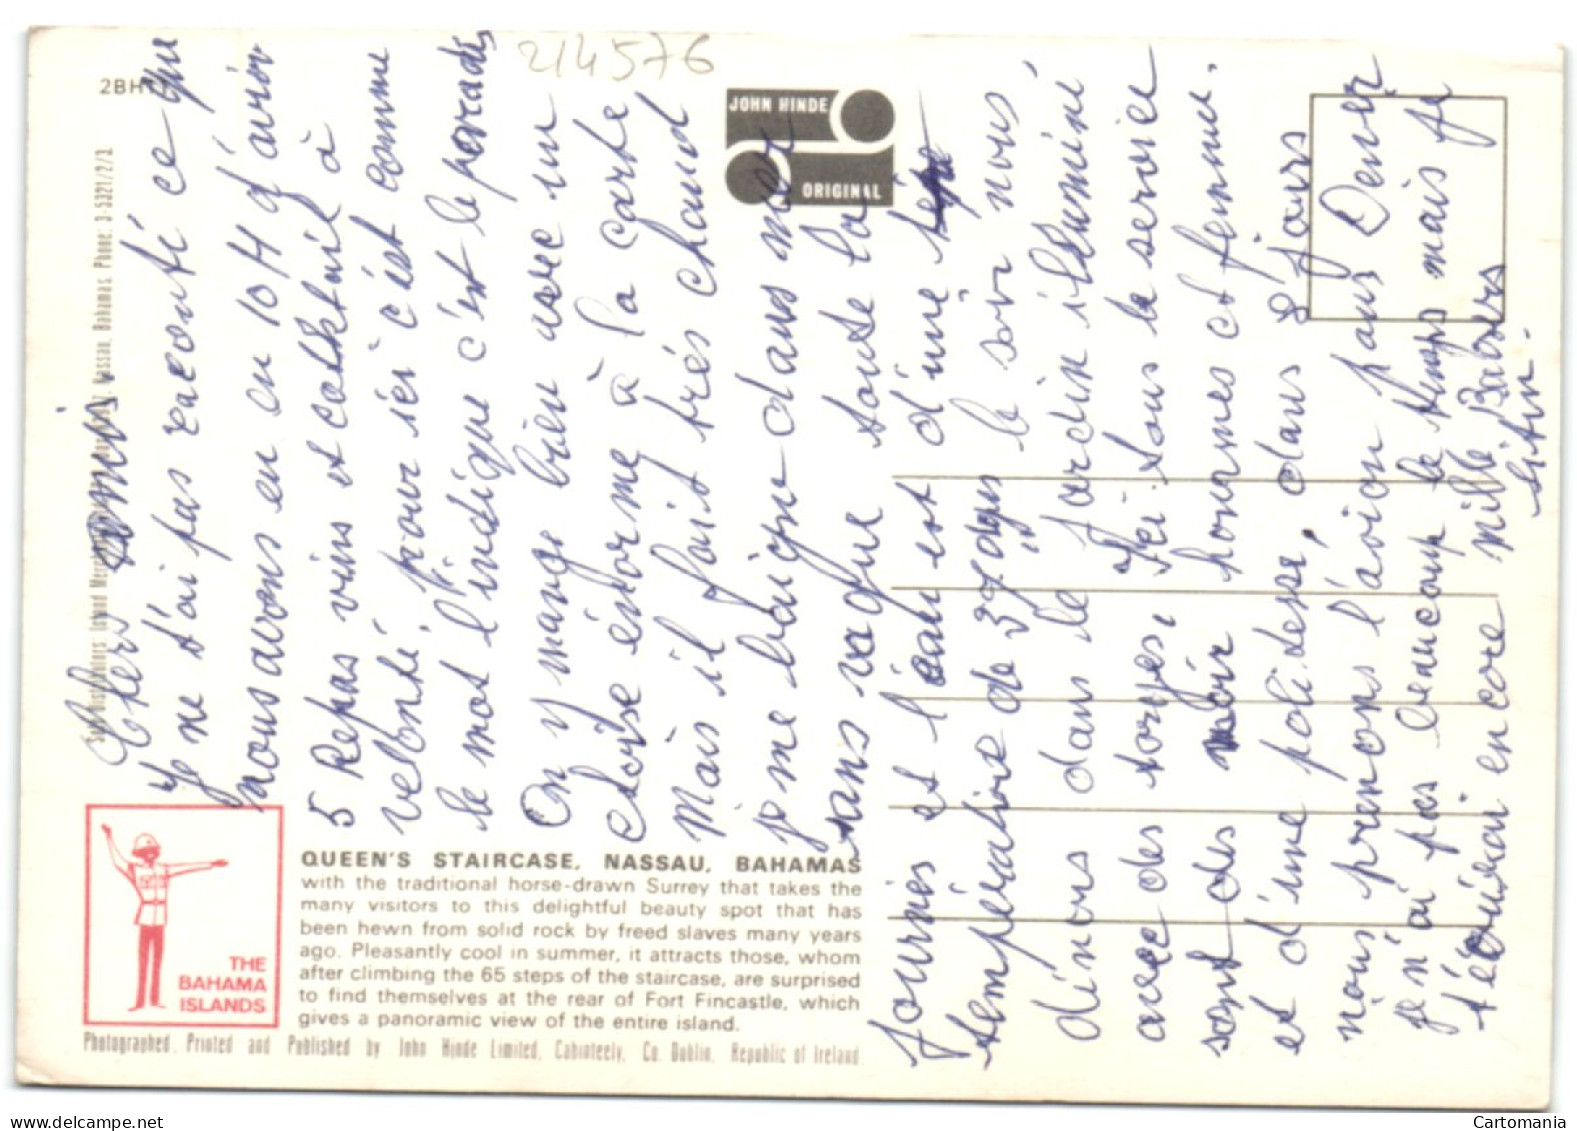 214576
2BH
JOHN HINDE
ORIGINAL
Phone: 3-5321/2/3
Nassau, Bahamas
Chers amis.
Je ne t'ai pas raconté ce que
nous avons eu en 10 H d'avion
5 Repas vins et cocktail à
velonté, pour ici c'est comme
le mot l'indique c'est le paradis
On y mange bien avec un
choise énorme à la carte
Mais il fait très chaud
je me baigne dans mer
sans vague toute la
Journée et l'eau est d'une
température de 37 degrés le soir nous
dinons dans le jardin illuminé
avec des torges, Ici tous le service
sont des noir hommes et femme.
et d'une polidesse, dans 8 jours
nous prenons l'avion pour Denver
je n'ai pas beaucoup le temps mais je
t'écrirai encore mille Baisers
QUEEN'S STAIRCASE, NASSAU, BAHAMAS
with the traditional horse-drawn Surrey that takes the
many visitors to this delightful beauty spot that has
been hewn from solid rock by freed slaves many years
ago. Pleasantly cool in summer, it attracts those, whom
after climbing the 65 steps of the staircase, are surprised
to find themselves at the rear of Fort Fincastle, which
gives a panoramic view of the entire island.
THE
BAHAMA
ISLANDS
Photographed, Printed and Published by John Hinde Limited, Cabinteely, Co. Dublin, Republic of Ireland
Cartomania